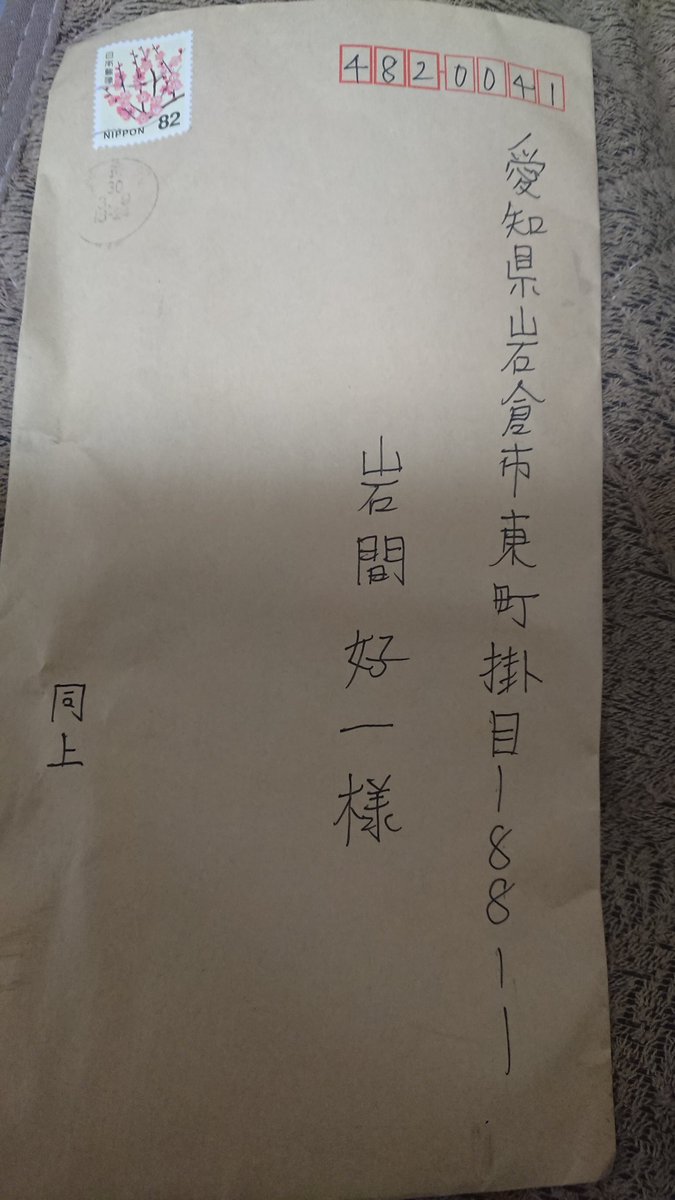 4820041
愛知県岩倉市東町掛目188-1
岩間 好一様
同上
日本郵便
NIPPON 82
30